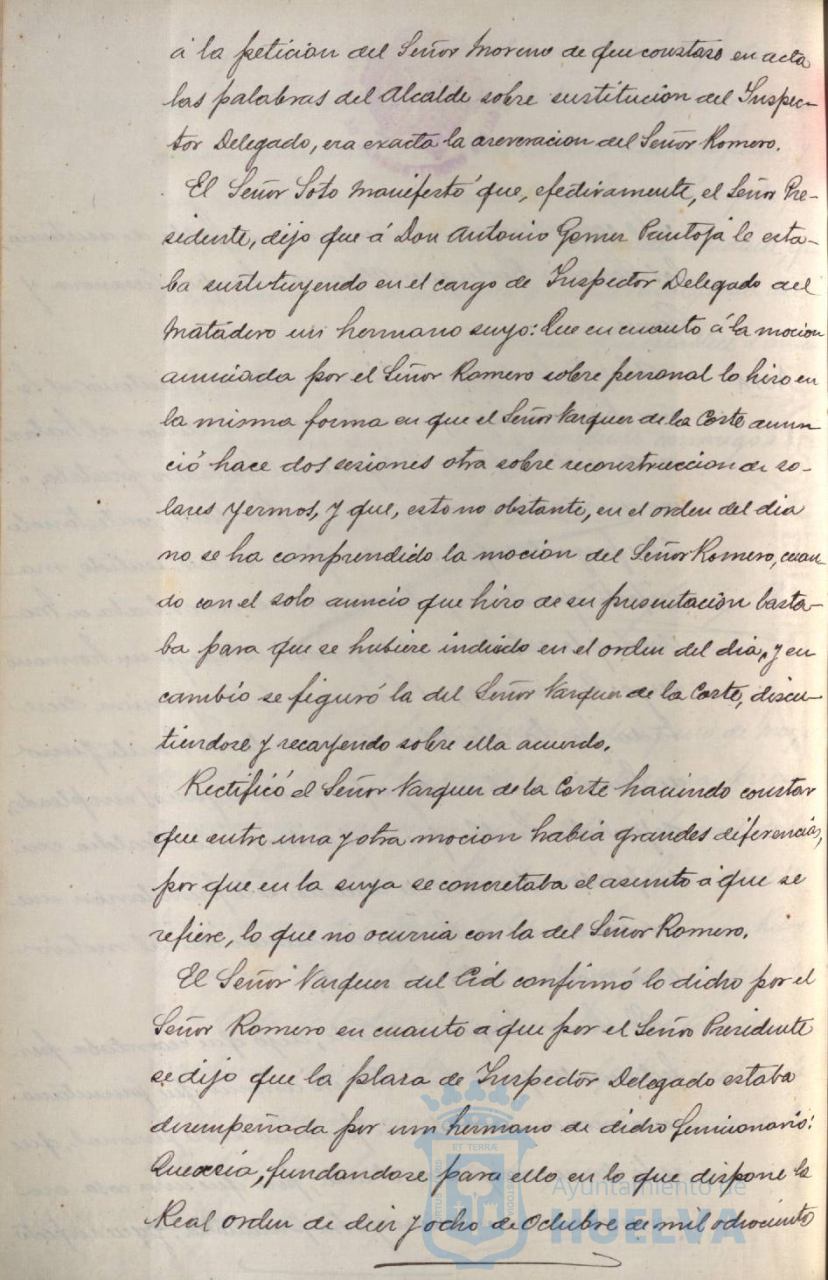 á la peticion del Señor Moreno de que constase en acta
las palabras del Alcalde sobre sustitucion del Inspec-
tor Delegado, era exacta la aseveracion del Señor Romero.
El Señor Soto manifestó que, efectivamente, el Señor Pre-
sidente, dijo que á Don Antonio Gomez Pantoja le esta-
ba sustituyendo en el cargo de Inspector Delegado del
Matadero un hermano suyo: Que en cuanto á la mocion
anunciada por el Señor Romero sobre personal lo hizo en
la misma forma en que el Señor Vazquez de la Corte anun
ció hace dos sesiones otra sobre reconstruccion de so-
lares yermos, y que, esto no obstante, en el orden del dia
no se ha comprendido la mocion del Señor Romero, cuan-
do con el solo anuncio que hizo de su presentacion basta-
ba para que se hubiere incluido en el orden del dia, y en
cambio se figuró la del Señor Vazquez de la Corte, discu-
tiendose y recayendo sobre ella acuerdo.
Rectificó el Señor Vazquez de la Corte haciendo constar
que entre una y otra mocion habia grandes diferencias,
por que en la suya se concretaba el asunto á que se
refiere, lo que no ocurria con la del Señor Romero.
El Señor Vazquez del Cid confirmó lo dicho por el
Señor Romero en cuanto á que por el Señor Presidente
se dijo que la plaza de Inspector Delegado estaba
desempeñada por un hermano de dicho funcionario:
Que creia, fundandose para ello en lo que dispone la
Real orden de diez y ocho de Octubre de mil ochociento
ET TERRÆ
Ayuntamiento de
HUELVA